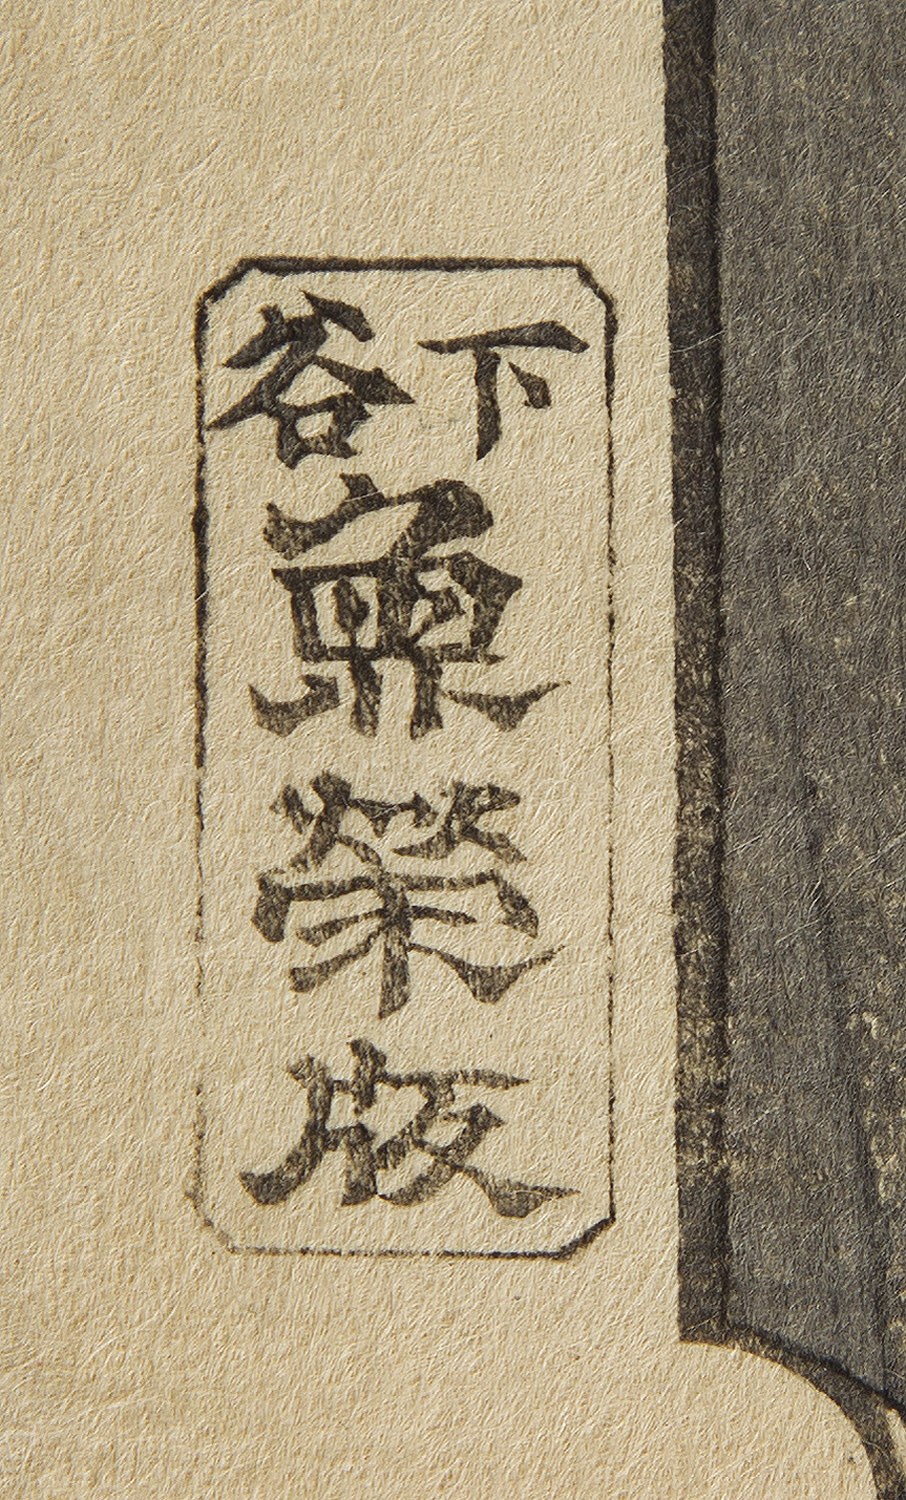 下谷
魚榮版